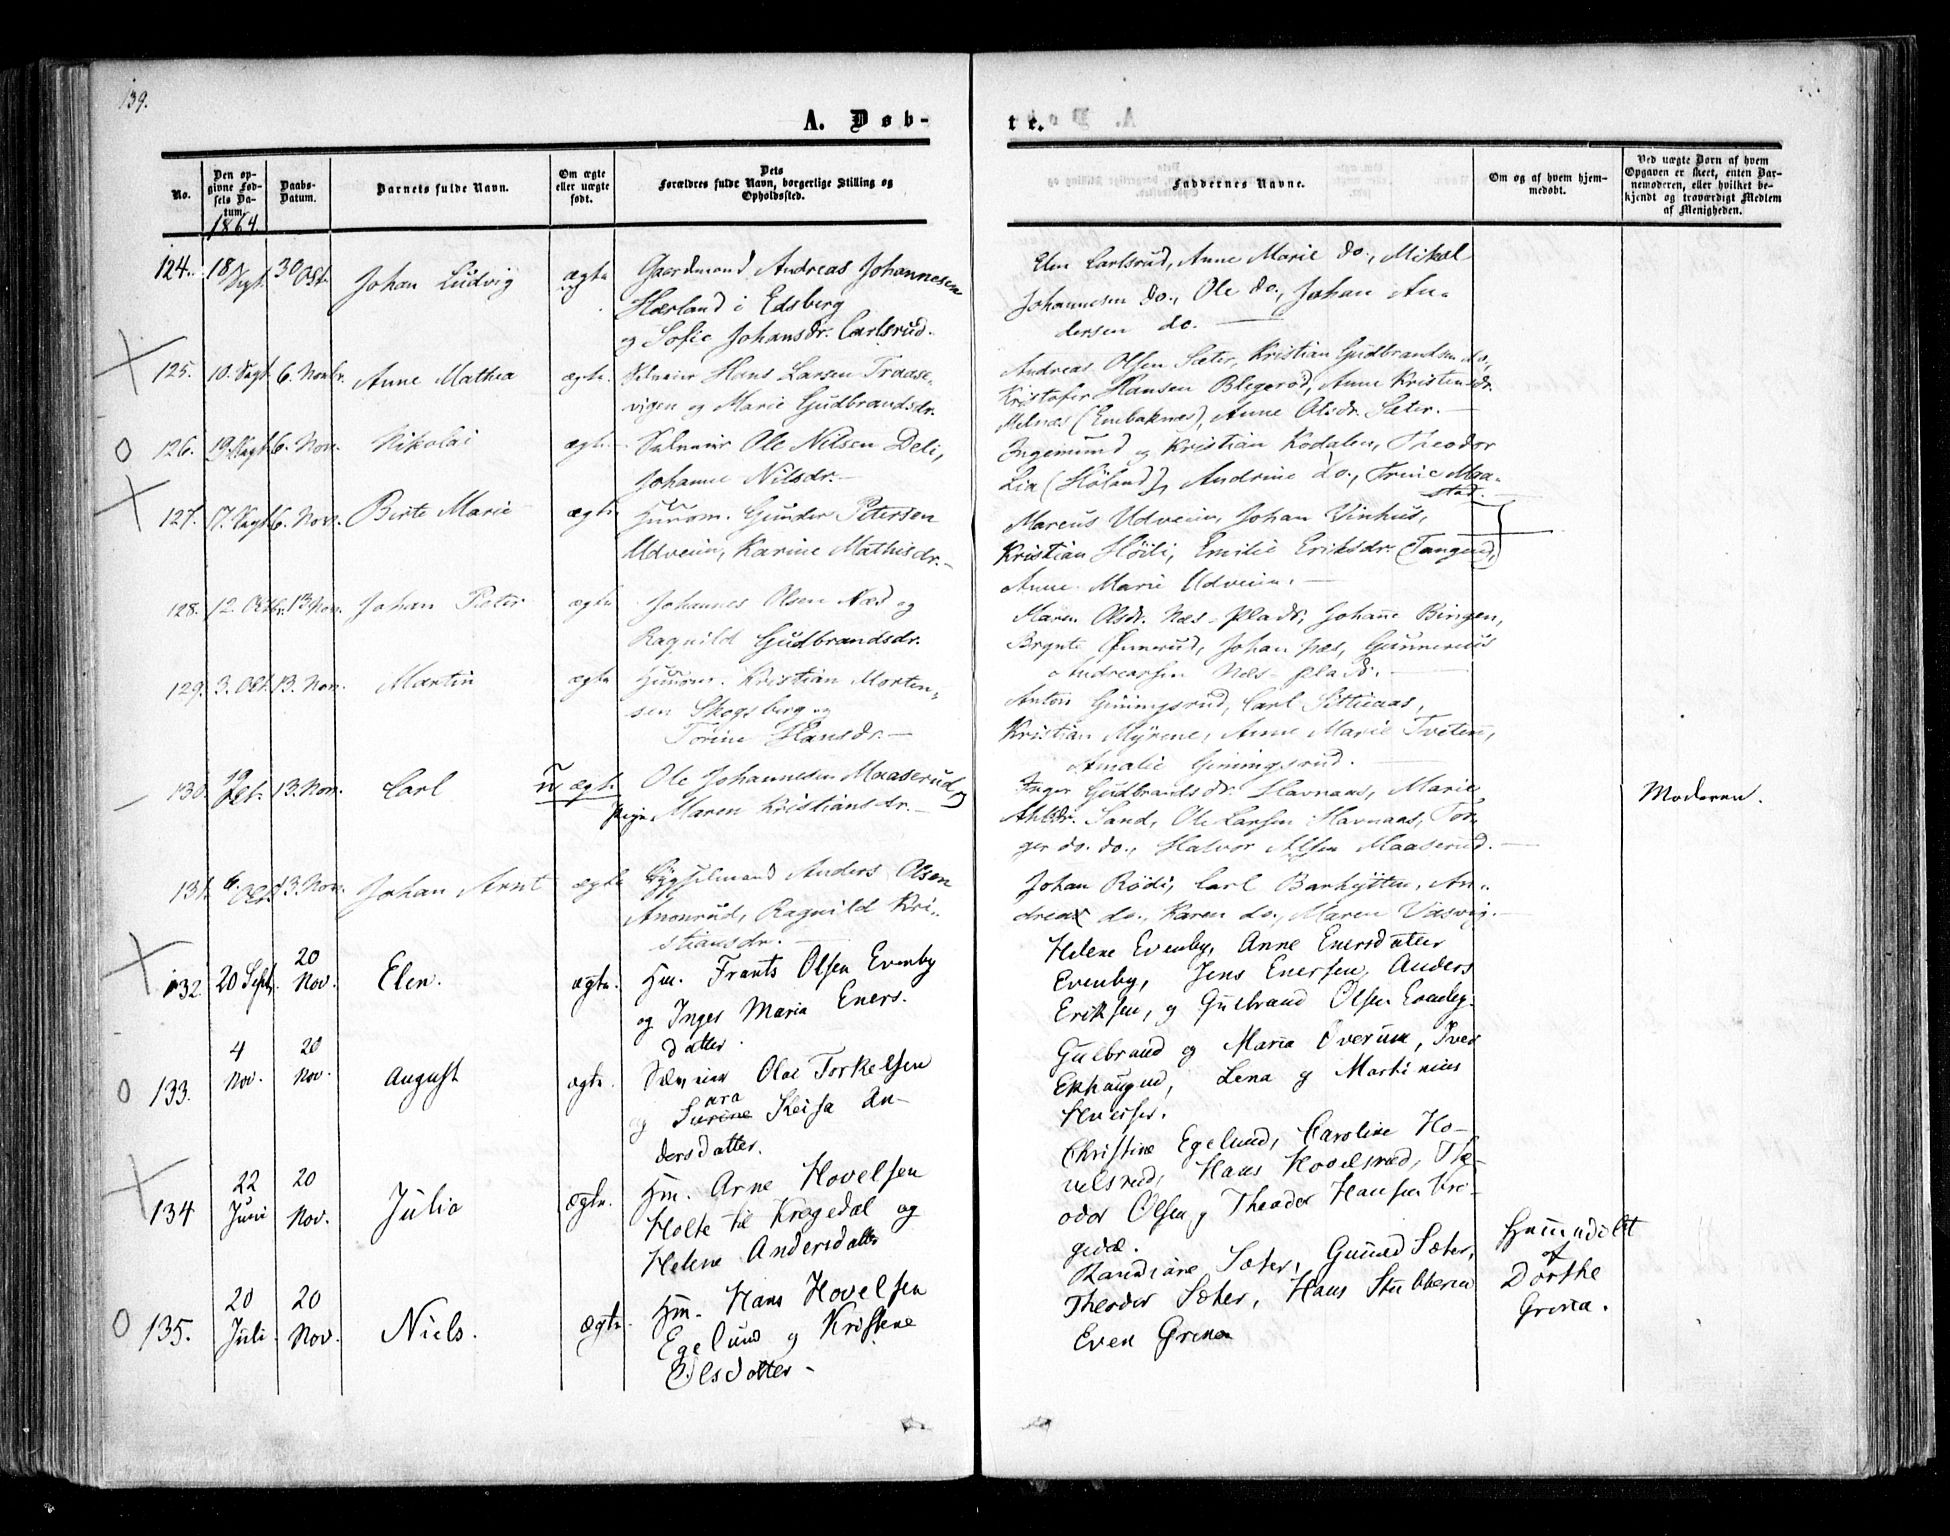 139.
A. Døb-
te.
No.
Den op-
givne Fød-
sels Da-
tum.
1864.
Daabs-
Datum.
Barnets fulde Navn.
Om ægte
eller uægte
født.
Dets
Forældres fulde Navn, borgerlige Stilling og
Opholdssted.
Faddernes Navne.
Om og af hvem hjem-
medøbt.
Ved uægte Børn af hvem
Opgaven er skeet, enten Bar-
nemoderen, eller hvilket be-
kjendt og troværdigt Medlem
af Menigheden.
124. 18 Sept. 30 Okt. Johan Ludvig ægte Gaardmand Andreas Johannesen
Hærland i Edsberg
og Sofie Johansdr. Carlsrud.
Elen Carlsrud, Anne Marie do., Mikal
Johannesen do., Ole do., Johan An-
dersen do.
125. 10. Sept. 6. Novbr. Anne Mathea ægte. Selveier Hans Larsen Traase-
vigen og Marie Gudbrandsdr.
Andreas Olsen Sæter, Kristian Gudbrandsen do,
Kristofer Hansen Blegerød, Anne Kristensdr.
(Embaknæs), Anne Olsdr. Sæter.
126. 19. Sept. 6. Nov. Nikolai ægte Selveier Ole Nilsen Deli,
Johanne Nilsdr.
Ingemund og Kristian Kodalen, Theodor
Lia (Høland), Andrine do., Trine Maa-
stad.
127. 17. Sept. 6. Nov. Birte Marie ægte Huusm. Gunder Petersen
Udveien, Karine Mathisdr.
Marcus Udveien, Johan Vinhus,
Kristian Høili, Emilie Eriksdr. (Tangen),
Anne Marie Udveien.
128. 12. Octbr. 13. Nov. Johan Peter ægte Johannes Olsen Næs og
Ragnild Gudbrandsdr.
Maren Olsdr. Næs-plads, Johanne Bingen,
Brynte, Johan Næs, Gunnerius
Andreassen Næs-plads.
129. 3. Oct. 13. Nov. Martin ægte Huusm. Kristian Morten-
sen Skogsberg og
Torine Hansdr.
Anton Giningsrud, Carl,
Kristian Myrene, Anne Marie Tveten,
Amalie Giningsrud.
130. 19 Oct. 13. Nov. Carl uægte. Ole Johannesen Maaserud og
Pige Maren Kristiansdr.
Inger Gudbrandsdr. Havnaas, Marie
Sand, Ole Larsen Havnaas, Tor-
ger do. do., Halvor Olsen Maaserud.
Moderen.
131. 6. Oct. 13. Nov. Johan Arnt ægte Anders Olsen
Anonrud, Ragnild Kri-
stiansdr.
Johan Rødi, Carl Barhytten, An-
dreas do., Karen do., Maren Væsvig.
132 20 Sept. 20 Nov. Elen. ægte. Hm. Frants Olsen Evenby
og Inger Maria Eners-
datter.
Helene Evenby, Anne Enersdatter
Evenby, Jens Enersen, Anders
Eriksen, og Gulbrand Olsen Evenby.
133. 4 Nov. 20 Nov. August ægte. Selveier Olai Torkelsen
og Sara Keisa An-
dersdatter.
Gulbrand og Maria Overud, Iver
Ekhaugen, Lena og Martinius
134 22 Juni 20 Nov. Julia ægte. Hm. Arne Hovelsen
Holte til Kragedal og
Helene Andersdatter
Christine Egelund, Caroline Ho-
velsrud, Hans Hovelsrud, The-
odor Olsen, Theodor Hansen
135. 20 Juli 20 Nov. Niels. ægte. Hm. Hans Hovelsen
Egelund og Kristine
Olsdatter
Randiane Sæter, Gunild Sæter,
Theodor Sæter, Hans Stubberud
Even Grina
Hjemmedøbt
af
Dorthe
Grina.